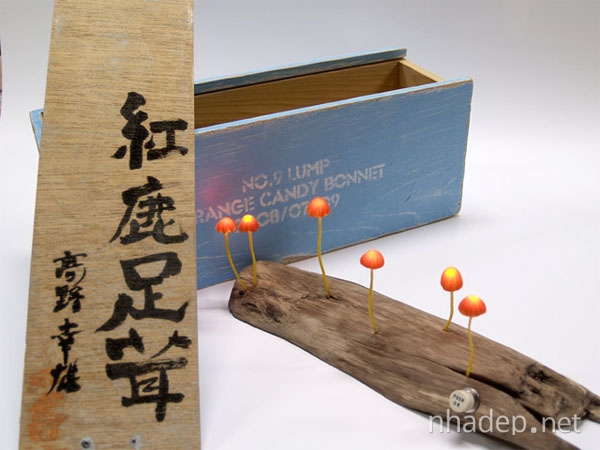 紅鹿足茸
高野幸雄
NO.9 LUMP
RANGE CANDY BONNET
nhadep.net